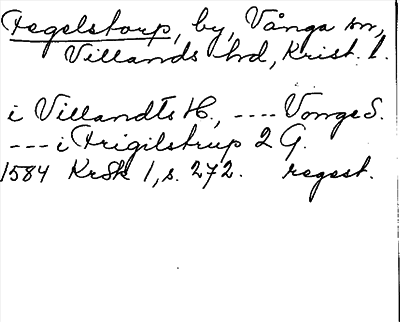 Fegelstorp, by, Vånga sn,
Villands hd, Krist. l.
i Villandts H., ---- Vonge S.
--- i Frigilstrup 2 G.
1584 KrSk 1, s. 272. regest.